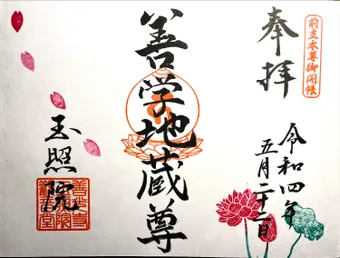 前立本尊御開帳
奉拝
令和四年
五月二十二日
善学地蔵尊
玉照院